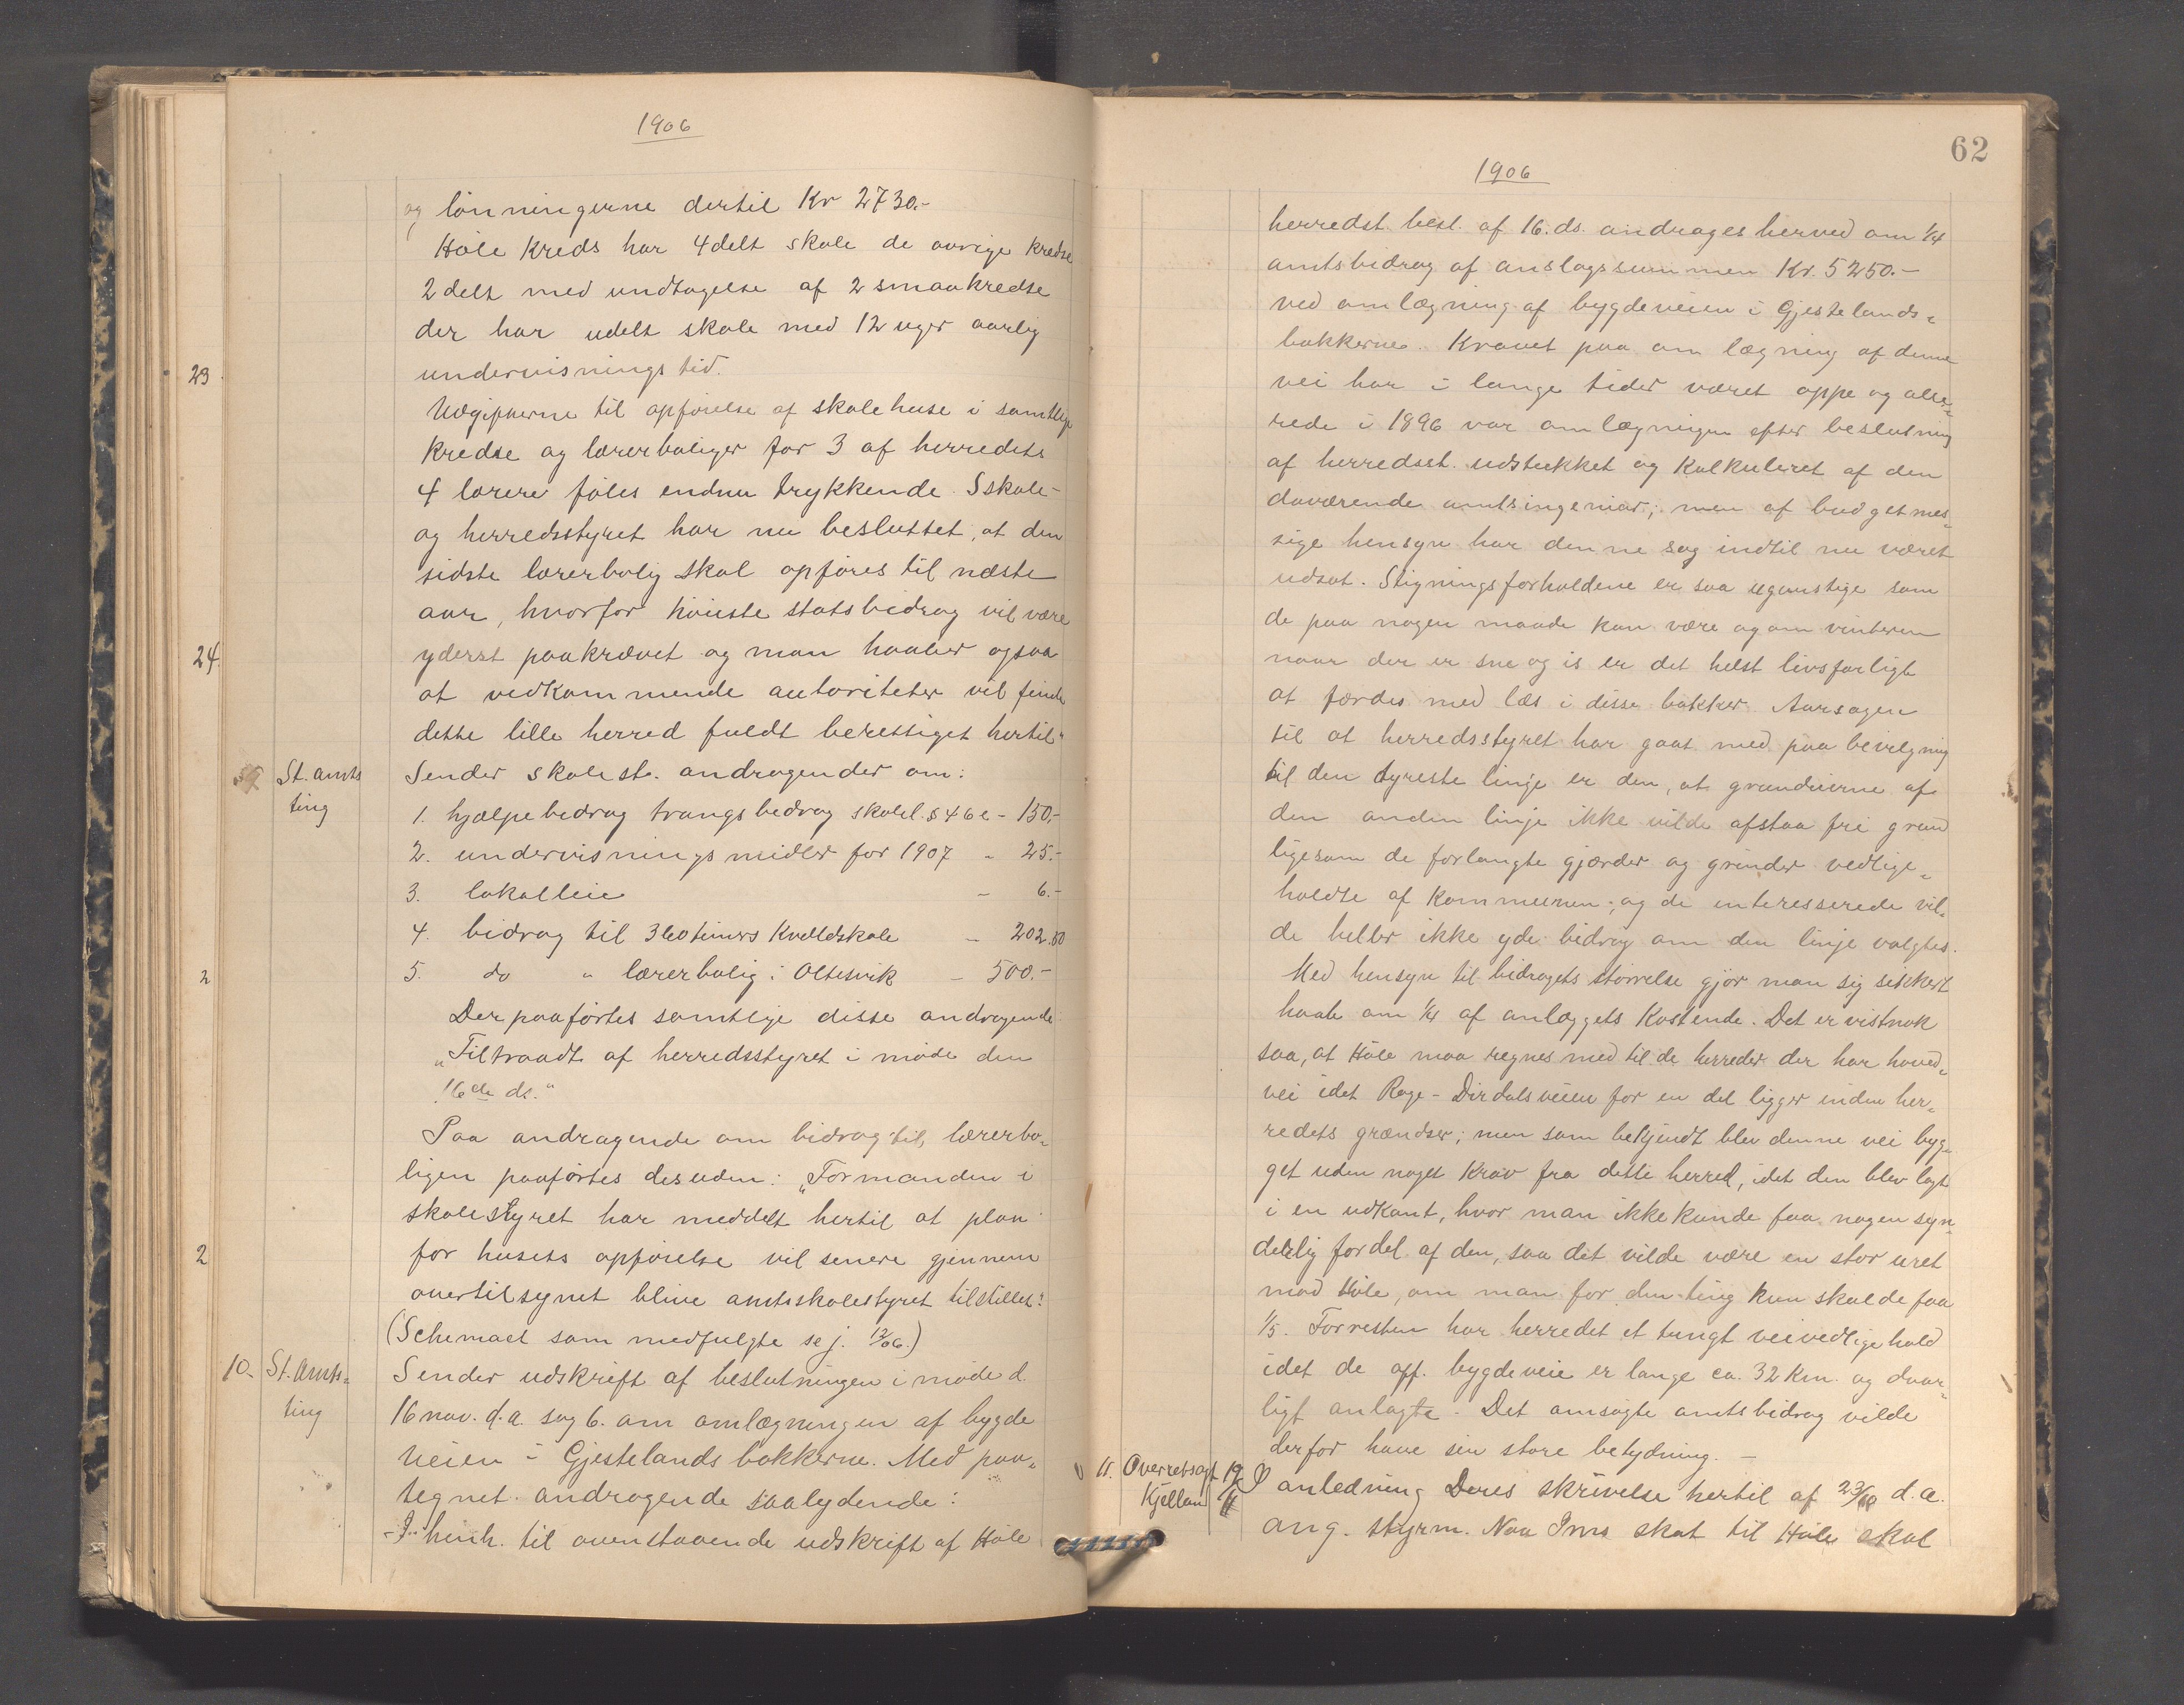 1906
og lönningerne dertil Kr 2730.-
Höle Kreds har 4delt skole de øvrige kredse
2delt med undtagelse af 2 smaakredse
der har udelt skole med 12 uger aarlig
undervisningstid.
Udgifterne til opförelse af skolehuse i samtlige
Kredse og lærerboliger for 3 af herredets
4 lærere föles endnu trykkende. Skole-
og herredsstyret har nu besluttet, at den
sidste lærerbolig skal opföres til næste
aar, hvorfor höieste statsbidrag vil være
yderst paakrævet og man haaber ogsaa
at vedkommende autoriteter vil finde
dette lille herred fuldt berettiget hertil"
St. amts
ting
Sender skolest. andragender om:
1. hjælpebidrag trangsbidrag skolel. § 46 e - 150,-
2. undervisningsmidler for 1907 " 25.-
3. lokalleie - 6.-
4. bidrag til 360 timers Kveldskole - 202.80
5. do " lærerbolig i Oltesvik - 500.-
Der paaførtes samtlige disse andragende
"Tiltraadt af herredsstyret i møde den
16de ds."
Paa andragende om bidrag til lærerbo-
ligen paaförtes desuden: "Formanden i
skolestyret har meddelt hertil at plan
for husets opförelse vil senere gjennem
overtilsynet blive amtsskolestyret tilstillet."
(Schemaet som medfulgte se j. 12/06.)
10. St. Amts-
ting
Sender udskrift af beslutningen i møde d.
16 nov. d.a. sag 6. om omlægningen af bygde
veien i Gjestelandsbakkerne. Med paa-
tegnet andragende saalydende:
"I henh. til ovenstaaende udskrift af Höle
23
24
2
2
62
1906
herredst. besl. af 16. ds. andrages herved om 1/4
amtsbidrag af anslagssummen Kr. 5250.-
ved omlægning af bygdeveien i Gjestelands-
bakkerne. Kravet paa omlægning af denne
vei har i lange tider været oppe og alle-
rede i 1896 var omlægningen efter beslutning
af herredsst. udstukket og Kalkuleret af den
daværende amtsingeniør; men af budgetmes-
sige hensyn har denne sag indtil nu været
udsat. Stigningsforholdene er saa ugunstige som
de paa nogen maade kan være og om vinteren
naar der er sne og is er det helst livsfarligt
at færdes med læs i disse bakker. Aarsagen
til at herredsstyret har gaat med paa bevilgning
til den dyreste linje er den, at grundeierne af
den anden linje ikke vilde afstaa fri grund
ligesom de forlangte gjærder og grinder vedlige-
holdte af Kommunen; og de interesserede vil-
de heller ikke yde bidrag om den linje valgtes.
Med hensyn til bidragets størrelse gjør man sig sikkert
haab om 1/4 af anlæggets Kostende. Det er vistnok
saa, at Höle maa regnes med til de herreder der har hoved-
vei idet Rage-Dirdalsveien for en del ligger inden her-
redets grændser; men som bekjendt blev denne vei byg-
get uden noget Krav fra dette herred, idet den blev lagt
i en udkant, hvor man ikke kunde faa nogen syn-
derlig fordel af den, saa det vilde være en stor uret
mod Höle, om man for den ting kun skulde faa
1/5. Forresten har herredet et tungt veivedligehold
idet de off. bygdeveie er lange ca. 32 Km. og daar-
ligt anlagte. Det ansøgte amtsbidrag vilde
derfor have sin store betydning. -
11. Overretssagf.
Kjelland
19/11
I anledning Deres skrivelse hertil af 23/10 d.a.
ang. styrm. Noa Ims skat til Höle skal